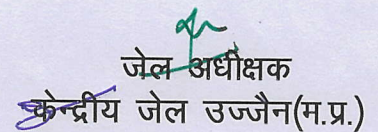 जेल अधीक्षक
केन्द्रीय जेल उज्जैन(म.प्र.)